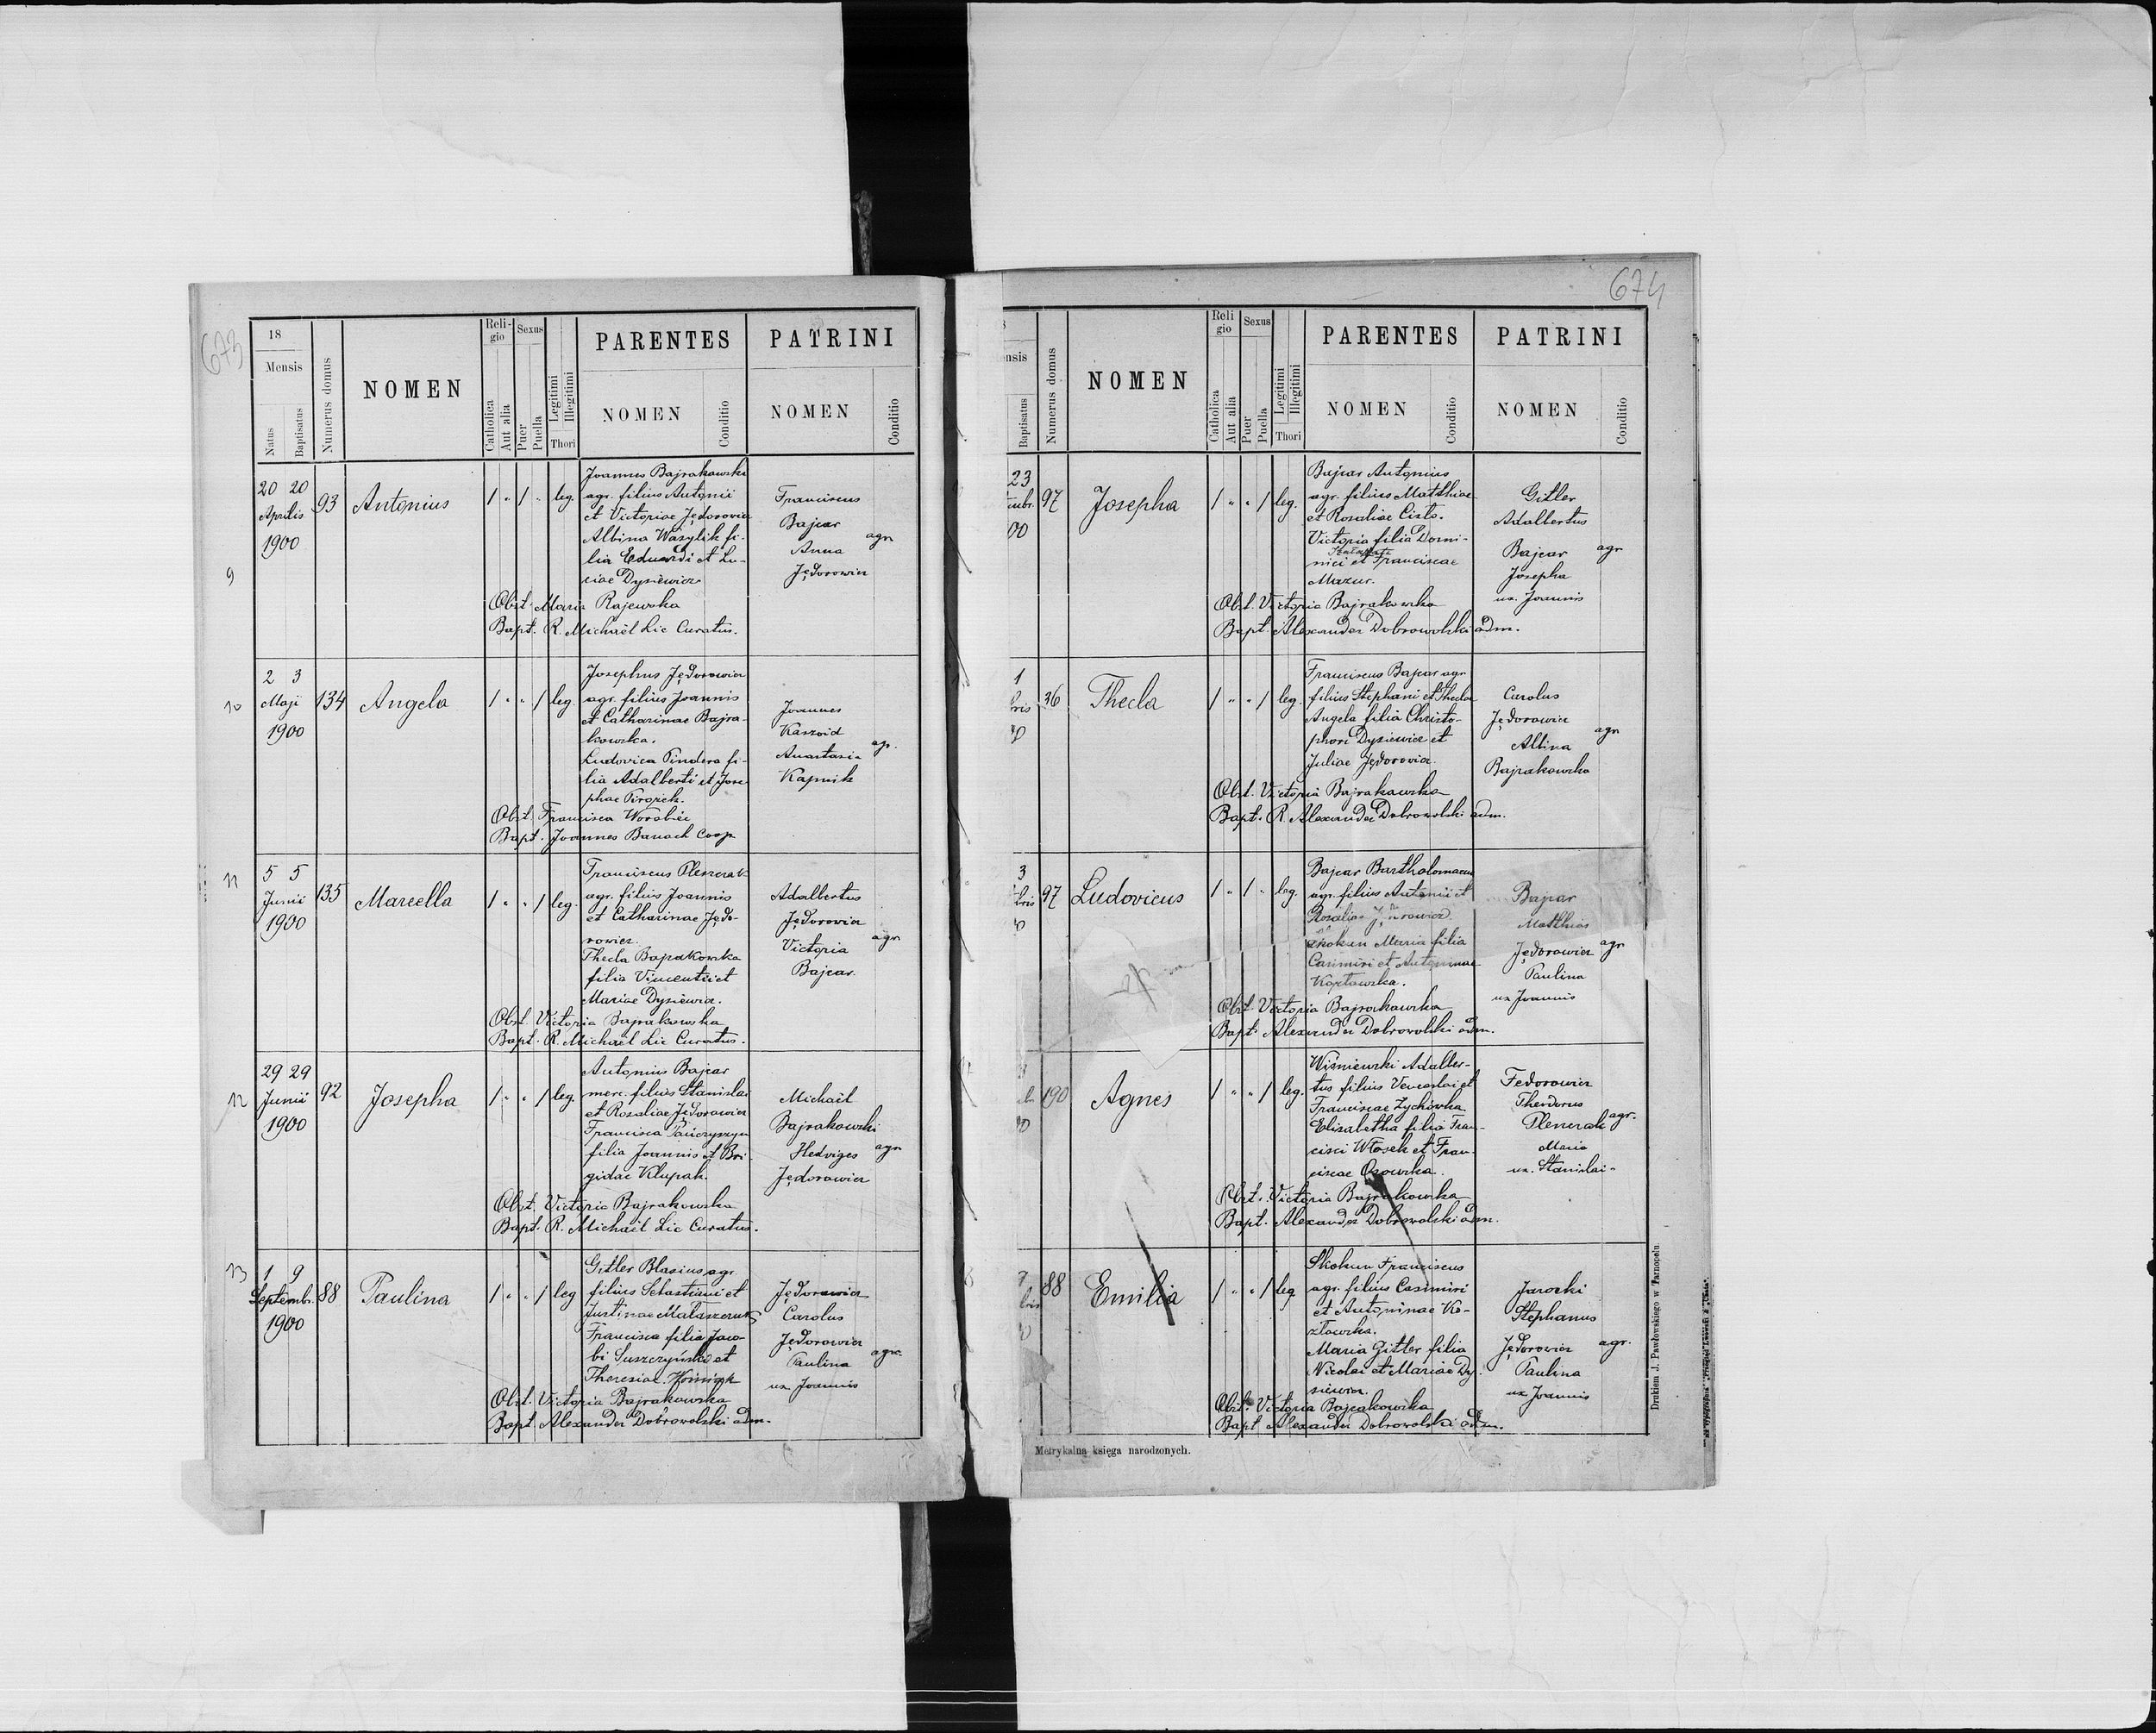 673
18
Mensis
Natus
Baptisatus
Numerus domus
NOMEN
Reli-
gio
Catholica
Aut alia
Sexus
Puer
Puella
Legitimi
Illegitimi
Thori
PARENTES
NOMEN
Conditio
PATRINI
NOMEN
Conditio
9
20 20
Aprilis
1900
93
Antonius
/ " / " leg.
Joannes Bajrakowski
agr. filius Antonii
et Victoriae Jędorowicz
Albina Wasylik fi-
lia Eduardi et Lu-
ciae Dysiewicz
Franciscus
Bajcar
Anna
Jędorowicz
agr
Obst. Maria Rajewska
Bapt. R. Michaël Lic Curatus.
10
2 3
Maji
1900
134
Angela
/ " " / leg.
Josephus Jędorowicz
agr. filius Joannis
et Catharinae Bajra-
kowska.
Ludovica Pindera fi-
lia Adalberti et Jose-
phae
Joannes
Anastasia
Kapnik
agr.
Obst. Francisca Worobiec
Bapt. Joannes Banach Coop
11
5 5
Junii
1900
135
Marcella
/ " " / leg.
Franciscus Plenerak
agr. filius Joannis
et Catharinae Jędo-
rowicz.
Thecla Bajrakowska
filia Vincentii et
Mariae Dysiewicz.
Adalbertus
Jędorowicz
Victoria
Bajcar.
agr
Obst. Victoria Bajrakowska
Bapt. R. Michaël Lic Curatus.
12
29 29
Junii
1900
92
Josepha
/ " " / leg.
Antonius Bajcar
merc. filius Stanislai
et Rosaliae Jędorowicz
Francisca Pańczyszyn
filia Joannis et Bri-
gidae Klupak.
Michaël
Bajrakowski
Hedviges
Jędorowicz
agr
Obst. Victoria Bajrakowska
Bapt. R. Michaël Lic Curatus.
13
1 9
Septembr.
1900
88
Paulina
/ " " / leg
Gitler Blasius agr
filius Sebastiani et
Justinae
Francisca filia Jaco-
bi Suszczyński et
Theresiae
Jędorowicz
Carolus
Jędorowicz
Paulina
ux Joannis
agr.
Obst. Victoria Bajrakowska
Bapt. Alexander Dobrowolski adm.
674
ensis
Baptisatus
Numerus domus
NOMEN
Reli
gio
Catholica
Aut alia
Sexus
Puer
Puella
Legitimi
Illegitimi
Thori
PARENTES
NOMEN
Conditio
PATRINI
NOMEN
Conditio
23
mbr.
00
97
Josepha
/ " " / leg.
Bajcar Antonius
agr. filius Matthiae
et Rosaliae Cisto.
Victoria filia Domi-
nici et Franciscae
Mazur.
Gitler
Adalbertus
Bajcar
Josepha
ux. Joannis
agr
Obst. Victoria Bajrakowska
Bapt. Alexander Dobrowolski adm.
1
bris
0
36
Thecla
/ " " / leg.
Franciscus Bajcar agr
filius Stephani et Thecla
Angela filia Christo-
phori Dysiewicz et
Juliae Jędorowicz.
Carolus
Jędorowicz
Albina
Bajrakowska
agr
Obst. Victoria Bajrakowska
Bapt. R. Alexander Dobrowolski adm.
3
bris
0
97
Ludovicus
/ " / " leg.
Bajcar Bartholomaeus
agr. filius Antonii et
Rosaliae Jędorowicz.
Skokun Maria filia
Casimiri et Antoninae
Kozłowska.
Bajcar
Matthias
Jędorowicz
Paulina
ux Joannis
agr
Obst. Victoria Bajrakowska
Bapt. Alexander Dobrowolski adm.
190
Agnes
/ " " / leg.
Wiśniewski Adalber-
tus filius Venceslai et
Franciscae Zychowka
Elisabetha filia Fran-
cisci Włosek et Fran-
ciscae Osowska.
Fedorowicz
Theodorus
Plenerak
Maria
ux. Stanislai
agr.
Obst. Victoria Bajrakowska
Bapt. Alexander Dobrowolski adm.
88
Emilia
/ " " / leg
Skokun Franciscus
agr. filius Casimiri
et Antoninae Ko-
złowska.
Maria Gitler filia
Nicolai et Mariae Dy-
siewicz.
Jarocki
Stephanus
Jędorowicz
Paulina
ux Joannis
agr.
Obst. Victoria Bajrakowska
Bapt Alexander Dobrowolski adm.
Metrykalna księga narodzonych.
Drukiem J. Pawłowskiego w Tarnopolu.